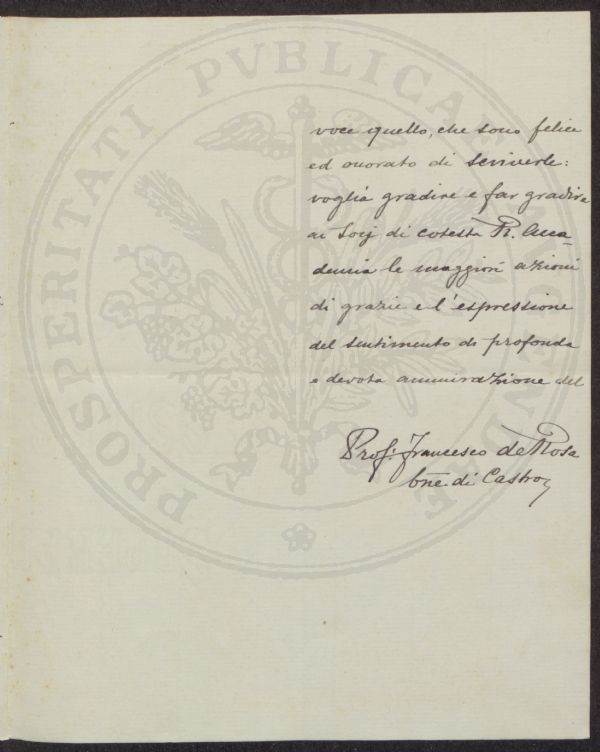 voce quello, che sono felice
ed onorato di scriverle:
voglia gradire e far gradire
ai Socj di cotesta R. Acca-
demia le maggiori azioni
di grazie e l'espressione
del sentimento di profonda
e devota ammirazione del
Prof. Francesco de Rosa
bne. di Castro
PROSPERITATI PVBLICAE AVGENDAE